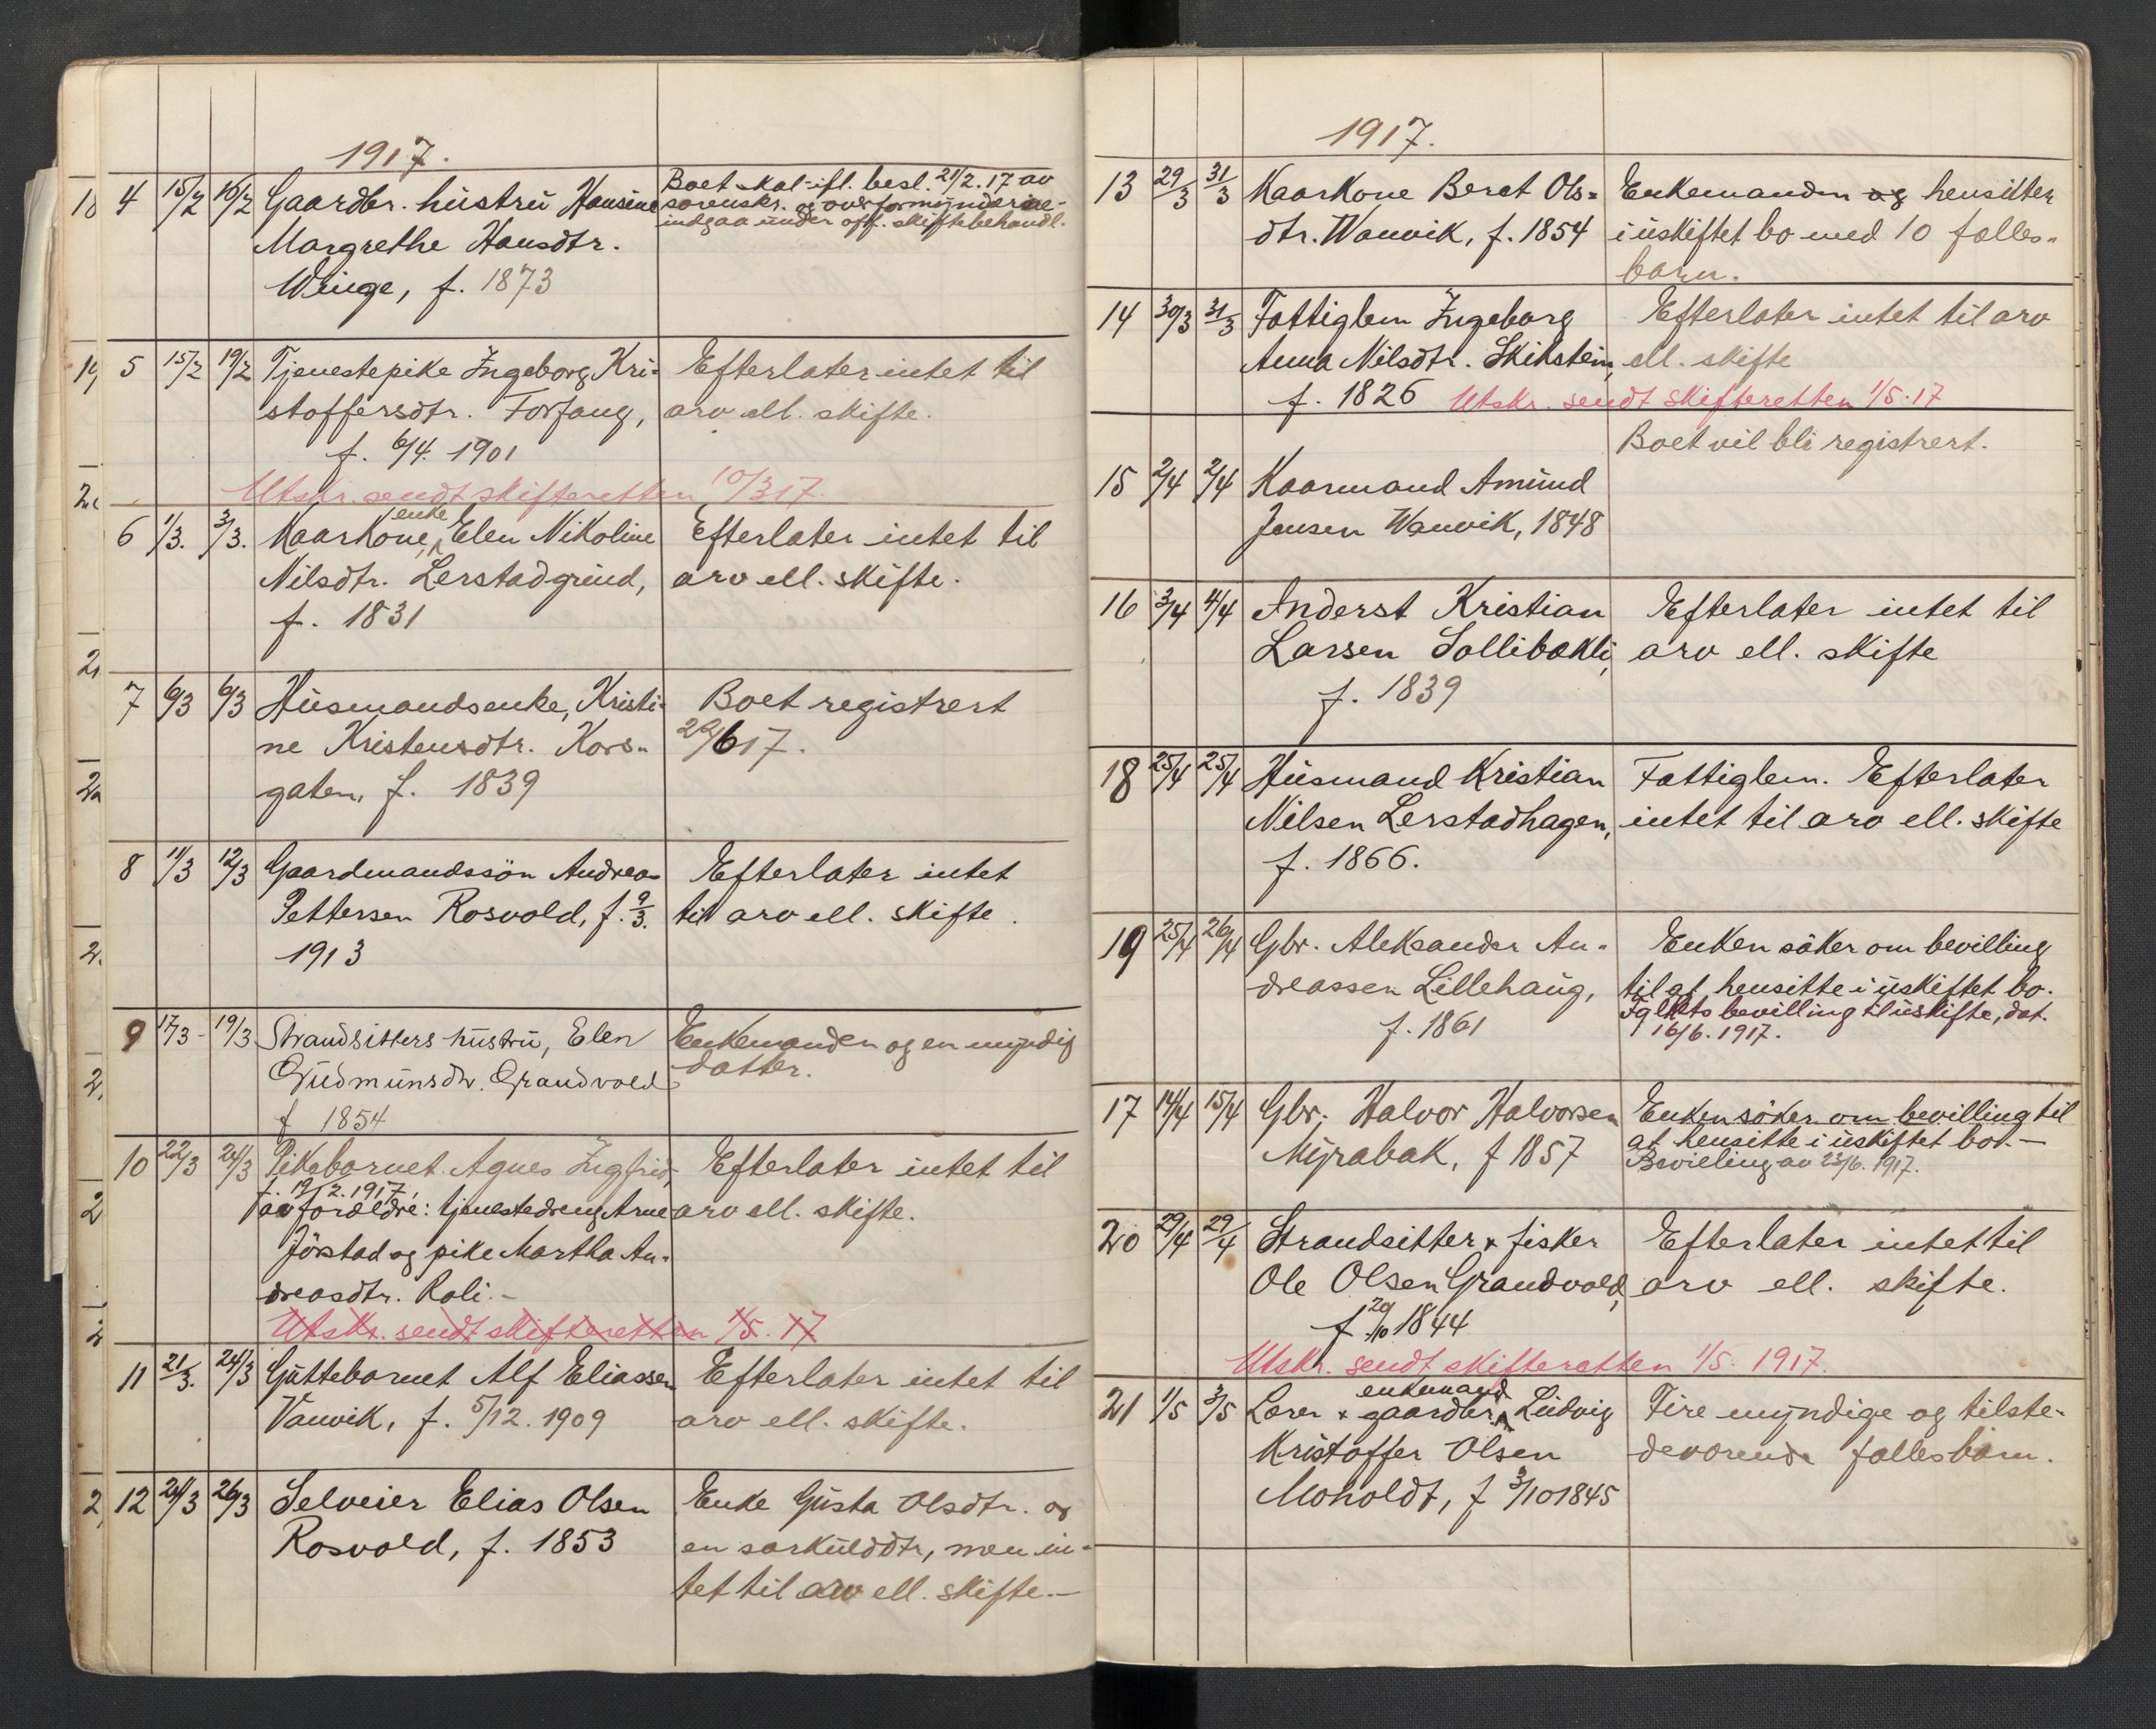 1917.
4 15/2 16/2 Gaardbr. hustru Hansine
Margrethe Hansdtr.
Winge, f. 1873
Boet skal ifl. besl. 21/2.17 av
sorenskr. og overformynderne
indgaa under off. skiftebehandl.
5 15/2 19/2 Tjenestepike Ingeborg Kri-
stoffersdtr. Forfang,
f. 6/4. 1901
Efterlater intet til
arv ell. skifte.
Utskr. sendt skifteretten 10/3 17.
6 1/3. 3/3. Kaarkone, enke Elen Nikoline
Nilsdtr. Lerstadgrind,
f. 1831
Efterlater intet til
arv ell. skifte.
7 6/3 6/3 Husmandsenke, Kristi-
ne Kristensdtr. Kors-
gaten, f. 1839
Boet registrert
22/6 17.
8 11/3 12/3 Gaardmandssön Andreas
Pettersen Rosvold, f. 9/3.
1913
Efterlater intet
til arv ell. skifte.
9 17/3 - 19/3 Strandsitters hustru, Elen
Gudmunsdtr. Grandvold
f 1854
Enkemanden og en myndig
datter.
10 22/3 24/3 Pikebarnet Agnes Ingfrid,
f. 19/2. 1917,
av forældre: tjenestedreng Arne
Jörstad og pike Martha An-
dreasdtr. Roli.-
Efterlater intet til
arv ell. skifte.
Utskr. sendt skifteretten 1/5. 17
11 21/3. 24/3 Guttebarnet Alf Eliassen
Vanvik, f. 5/12. 1909
Efterlater intet til
arv ell. skifte.
12 24/3 26/3 Selveier Elias Olsen
Rosvold, f. 1853
Enke Gusta Olsdtr. og
en særkulddtr, men in-
tet til arv ell. skifte.-
1917.
13 29/3 31/3 Kaarkone Beret Ols-
dtr. Wanvik, f. 1854
Enkemanden og hensitter
i uskiftet bo med 10 fælles-
barn.
14 30/3 31/3 Fattiglem Ingeborg
Anna Nilsdtr. Skikstein,
f. 1826
Efterlater intet til arv
ell. skifte
Utskr. sendt skifteretten 1/5.17
15 2/4 2/4 Kaarmand Amund
Jensen Wanvik, 1848
Boet vil bli registrert.
16 3/4 4/4 Inderst Kristian
Larsen Sollibakli,
f. 1839
Efterlater intet til
arv ell. skifte
18 25/4 25/4 Husmand Kristian
Nilsen Lerstadhagen,
f. 1866.
Fattiglem. Efterlater
intet til arv ell. skifte
19 25/4 26/4 Gbr. Aleksander An-
dreassen Lillehaug,
f. 1861
Enken söker om bevilling
til at hensitte i uskiftet bo.
bevilling til uskifte, dat.
16/6. 1917.
17 14/4 15/4 Gbr. Halvor Halvorsen
Myrabak, f 1857
Enken söker om bevilling til
at hensitte i uskiftet bo.-
Bevilling av 23/6. 1917.
20 29/4 29/4 Strandsitter & fisker
Ole Olsen Grandvold,
f 29/10 1844
Efterlater intet til
arv ell. skifte.
Utskr. sendt skifteretten 1/5. 1917.
21 1/5 3/5 Lærer & gaardbr, enkemand Ludvig
Kristoffer Olsen
Moholdt, f 3/10 1845
Fire myndige og tilste-
deværende fællesbarn.